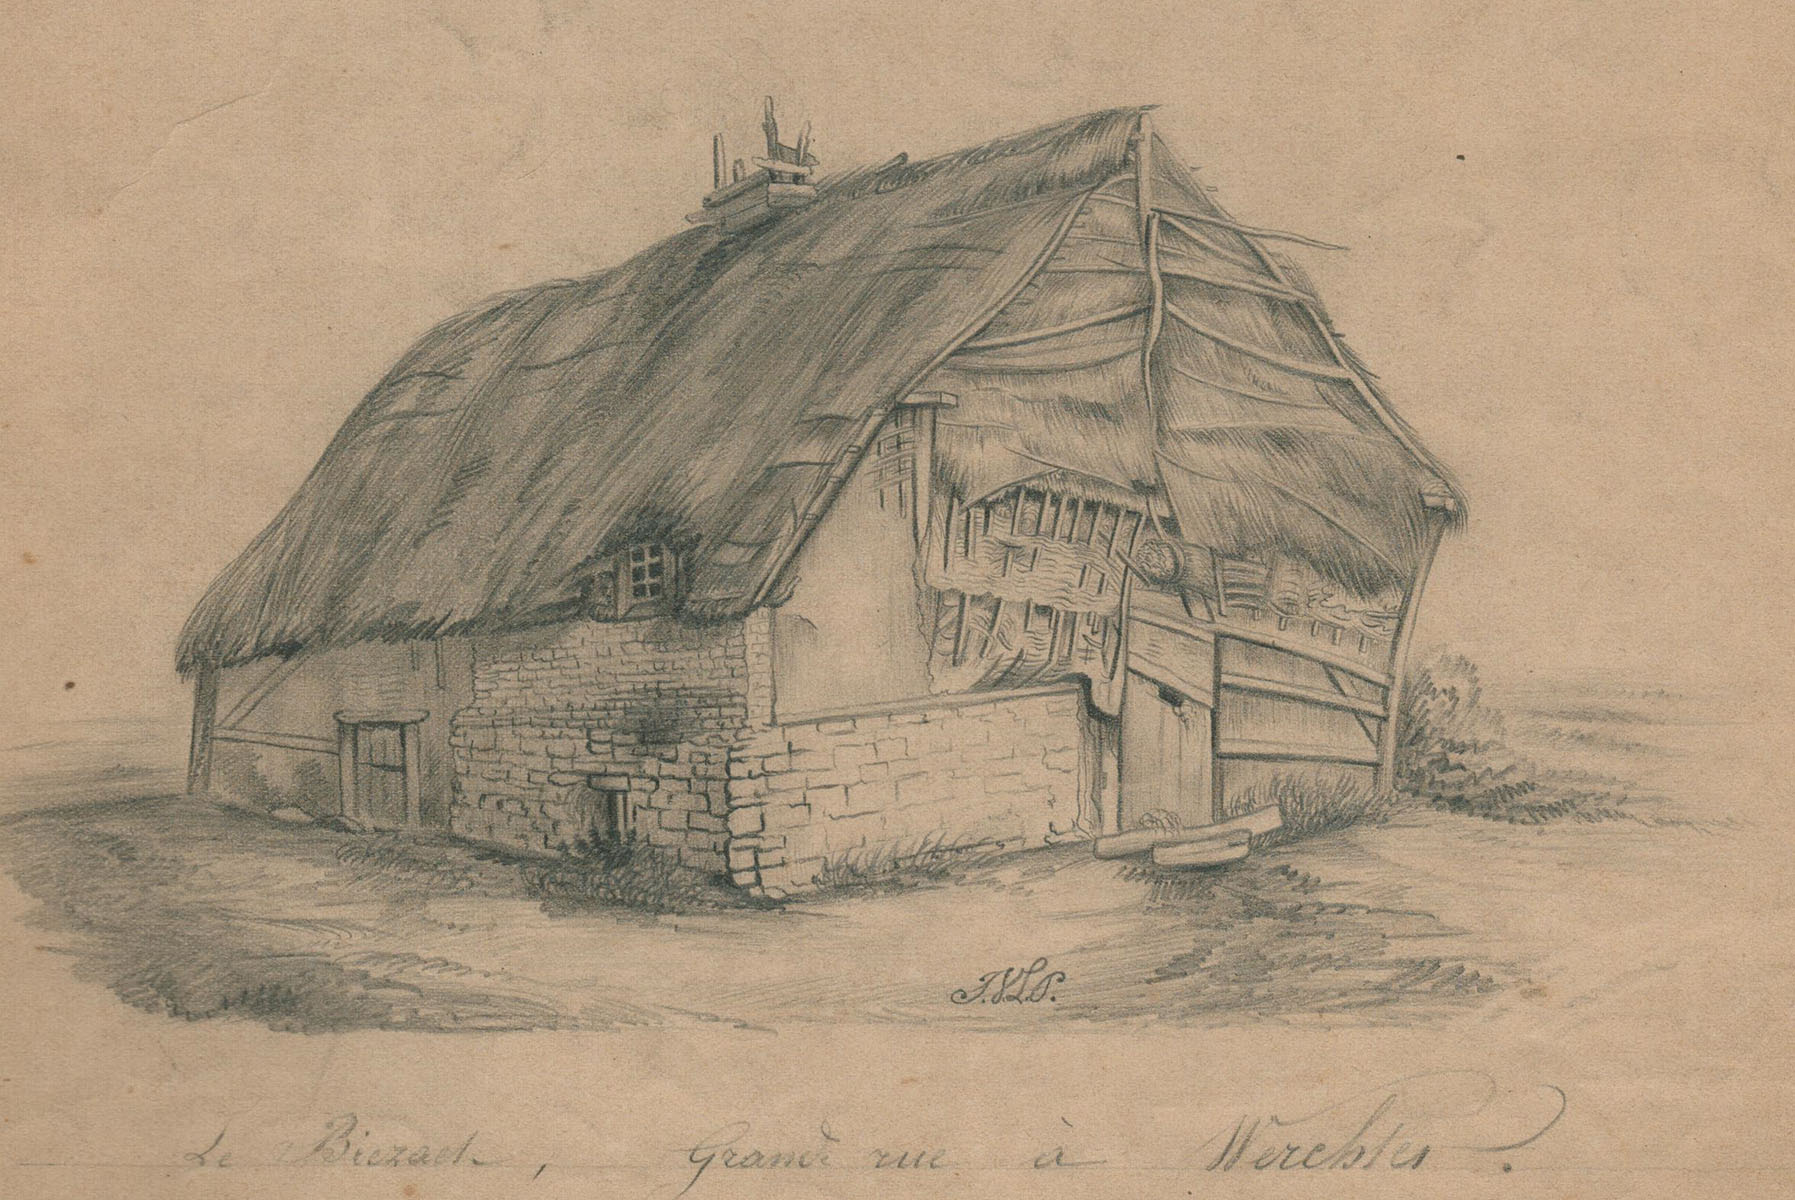 J.V.L.P.
Le Biezack, Grande rue à Werchter.